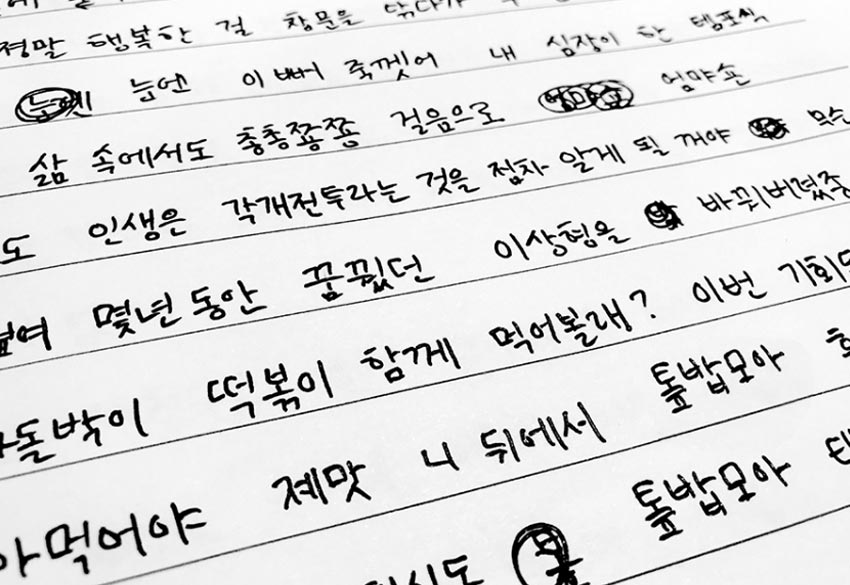 정말 행복한 걸 창문을 닦다가
눕엔 이뻐 죽겠어 내 심장이 한 템포씩
삶 속에서도 총총쫑쫑 걸음으로 엄마손
도 인생은 각개전투라는 것을 점차 알게 될 꺼야 무슨
몇년동안 꿈꿨던 이상형을 바뀌버렸중
돌박이 떡볶이 함께 먹어볼래? 이번 기회
아먹어야 졔맛 니 뒤에서 톺밥모아
톺밥모아